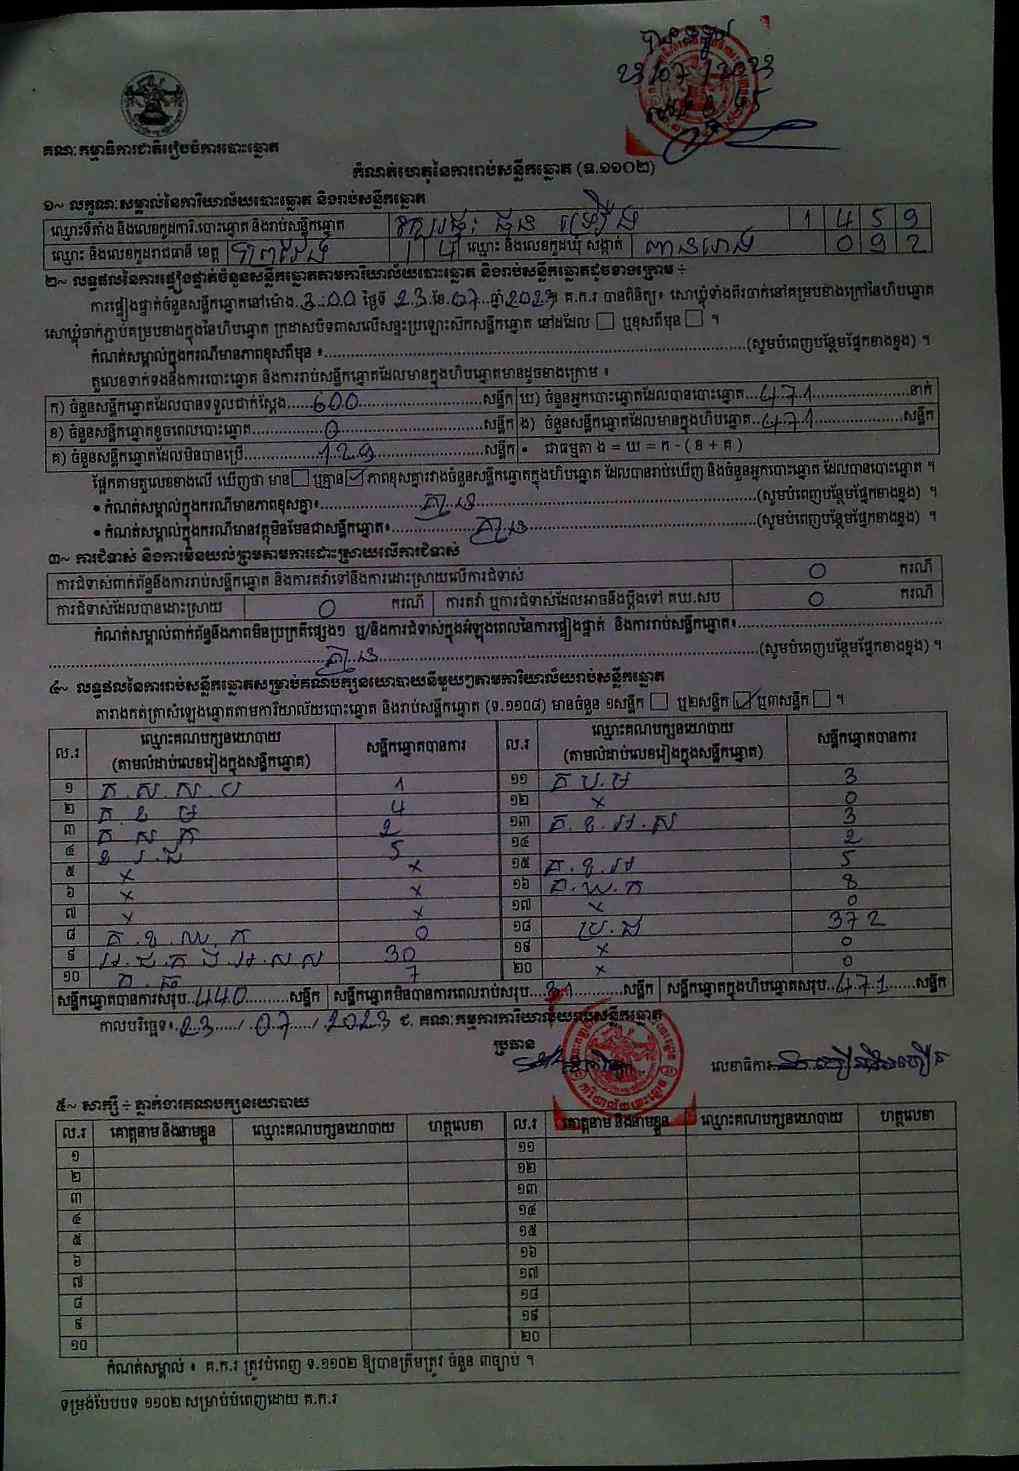 23/07/2023
គណៈកម្មាធិការជាតិរៀបចំការបោះឆ្នោត
កំណត់ហេតុនៃការរាប់សន្លឹកឆ្នោត (ទ.១១០២)
១~ លក្ខណៈសម្គាល់នៃការិយាល័យបោះឆ្នោត និងរាប់សន្លឹកឆ្នោត
ឈ្មោះទីតាំង និងលេខកូដការិ.បោះឆ្នោត និងរាប់សន្លឹកឆ្នោត 1 4 5 9
ឈ្មោះ និងលេខកូដរាជធានី ខេត្ត ព្រៃវែង 1 4 ឈ្មោះ និងលេខកូដឃុំ សង្កាត់ ពានរោង 0 9 2
២~ លទ្ធផលនៃការផ្ទៀងផ្ទាត់ចំនួនសន្លឹកឆ្នោតតាមការិយាល័យបោះឆ្នោត និងរាប់សន្លឹកឆ្នោតដូចខាងក្រោម ÷
ការផ្ទៀងផ្ទាត់ចំនួនសន្លឹកឆ្នោតនៅម៉ោង 3:00 ថ្ងៃទី 23 ខែ 07 ឆ្នាំ 2023 គ.ក.រ បានពិនិត្យ៖ សោឃ្លុំទាំងពីរចាក់នៅគម្របខាងក្រៅនៃហិបឆ្នោត
សោឃ្លុំចាក់ភ្ជាប់គម្របខាងក្នុងនៃហិបឆ្នោត ក្រដាសបិទពាសលើសន្ទះប្រឡោះស៊កសន្លឹកឆ្នោត នៅដដែល ឬខុសពីមុន ។
កំណត់សម្គាល់ក្នុងករណីមានភាពខុសពីមុន ៖ (សូមបំពេញបន្ថែមផ្នែកខាងខ្នង) ។
តួលេខទាក់ទងនឹងការបោះឆ្នោត និងការរាប់សន្លឹកឆ្នោតដែលមានក្នុងហិបឆ្នោតមានដូចខាងក្រោម ៖
ក) ចំនួនសន្លឹកឆ្នោតដែលបានទទួលជាក់ស្ដែង 600 សន្លឹក ឃ) ចំនួនអ្នកបោះឆ្នោតដែលបានបោះឆ្នោត 471 នាក់
ខ) ចំនួនសន្លឹកឆ្នោតខូចពេលបោះឆ្នោត 0 សន្លឹក ង) ចំនួនសន្លឹកឆ្នោតដែលមានក្នុងហិបឆ្នោត 471 សន្លឹក
គ) ចំនួនសន្លឹកឆ្នោតដែលមិនបានប្រើ 129 សន្លឹក • ជាធម្មតា ង = ឃ = ក - ( ខ + គ )
ផ្អែកតាមតួលេខខាងលើ ឃើញថា មាន ឬគ្មាន ភាពខុសគ្នារវាងចំនួនសន្លឹកឆ្នោតក្នុងហិបឆ្នោត ដែលបានរាប់ឃើញ និងចំនួនអ្នកបោះឆ្នោត ដែលបានបោះឆ្នោត ។
• កំណត់សម្គាល់ក្នុងករណីមានភាពខុសគ្នា៖ គ្មាន (សូមបំពេញបន្ថែមផ្នែកខាងខ្នង) ។
• កំណត់សម្គាល់ក្នុងករណីមានវត្ថុមិនមែនជាសន្លឹកឆ្នោត៖ គ្មាន (សូមបំពេញបន្ថែមផ្នែកខាងខ្នង) ។
៣~ ការជំទាស់ និងការមិនយល់ព្រមតាមការដោះស្រាយលើការជំទាស់
ការជំទាស់ពាក់ព័ន្ធនឹងការរាប់សន្លឹកឆ្នោត និងការតវ៉ាទៅនឹងការដោះស្រាយលើការជំទាស់ 0 ករណី
ការជំទាស់ដែលបានដោះស្រាយ 0 ករណី ការតវ៉ា ឬការជំទាស់ដែលអាចនឹងប្ដឹងទៅ គឃ.សប 0 ករណី
កំណត់សម្គាល់ពាក់ព័ន្ធនឹងភាពមិនប្រក្រតីផ្សេងៗ ឬ/និងការជំទាស់ក្នុងអំឡុងពេលនៃការផ្ទៀងផ្ទាត់ និងការរាប់សន្លឹកឆ្នោត៖
គ្មាន (សូមបំពេញបន្ថែមផ្នែកខាងខ្នង) ។
៤~ លទ្ធផលនៃការរាប់សន្លឹកឆ្នោតសម្រាប់គណបក្សនយោបាយនីមួយៗតាមការិយាល័យរាប់សន្លឹកឆ្នោត
តារាងកត់ត្រាសំឡេងឆ្នោតតាមការិយាល័យបោះឆ្នោត និងរាប់សន្លឹកឆ្នោត (ទ.១១០៨) មានចំនួន ១សន្លឹក ឬ២សន្លឹក ឬ៣សន្លឹក ។
ល.រ ឈ្មោះគណបក្សនយោបាយ (តាមលំដាប់លេខរៀងក្នុងសន្លឹកឆ្នោត) សន្លឹកឆ្នោតបានការ ល.រ ឈ្មោះគណបក្សនយោបាយ (តាមលំដាប់លេខរៀងក្នុងសន្លឹកឆ្នោត) សន្លឹកឆ្នោតបានការ
១ គ.ស.ស.ប 1 ១១ គ.ប.ម 3
២ គ.ខ.ម 4 ១២ x 0
៣ គ.ស.ក 2 ១៣ គ.ខ.អ.ស 3
៤ ខ.រ.ជ 5 ១៤ 2
៥ x x ១៥ គ.ខ.អ 5
៦ x x ១៦ គ.ឃ.ក 8
៧ x x ១៧ x 0
៨ គ.ខ.ឈ.ក 0 ១៨ ប្រ.ជ 372
៩ អ.ជ.គ.ជ.អ.ស.ស 30 ១៩ x 0
១០ គ.ឆ 7 ២០ x 0
សន្លឹកឆ្នោតបានការសរុប 440 សន្លឹក សន្លឹកឆ្នោតមិនបានការពេលរាប់សរុប 31 សន្លឹក សន្លឹកឆ្នោតក្នុងហិបឆ្នោតសរុប 471 សន្លឹក
កាលបរិច្ឆេទ៖ 23 / 07 / 2023 ជ. គណៈកម្មការការិយាល័យរាប់សន្លឹកឆ្នោត
ប្រធាន
លេខាធិការ
៥~ សាក្សី ÷ ភ្នាក់ងារគណបក្សនយោបាយ
ល.រ គោត្តនាម និងនាមខ្លួន ឈ្មោះគណបក្សនយោបាយ ហត្ថលេខា ល.រ គោត្តនាម និងនាមខ្លួន ឈ្មោះគណបក្សនយោបាយ ហត្ថលេខា
១ ១១
២ ១២
៣ ១៣
៤ ១៤
៥ ១៥
៦ ១៦
៧ ១៧
៨ ១៨
៩ ១៩
១០ ២០
កំណត់សម្គាល់ ៖ គ.ក.រ ត្រូវបំពេញ ទ.១១០២ ឱ្យបានត្រឹមត្រូវ ចំនួន ៣ច្បាប់ ។
ទម្រង់បែបបទ ១១០២ សម្រាប់បំពេញដោយ គ.ក.រ